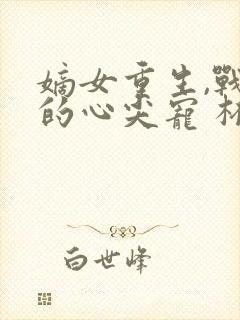 嫡女重生,戰
的心尖寵 林
白世峰